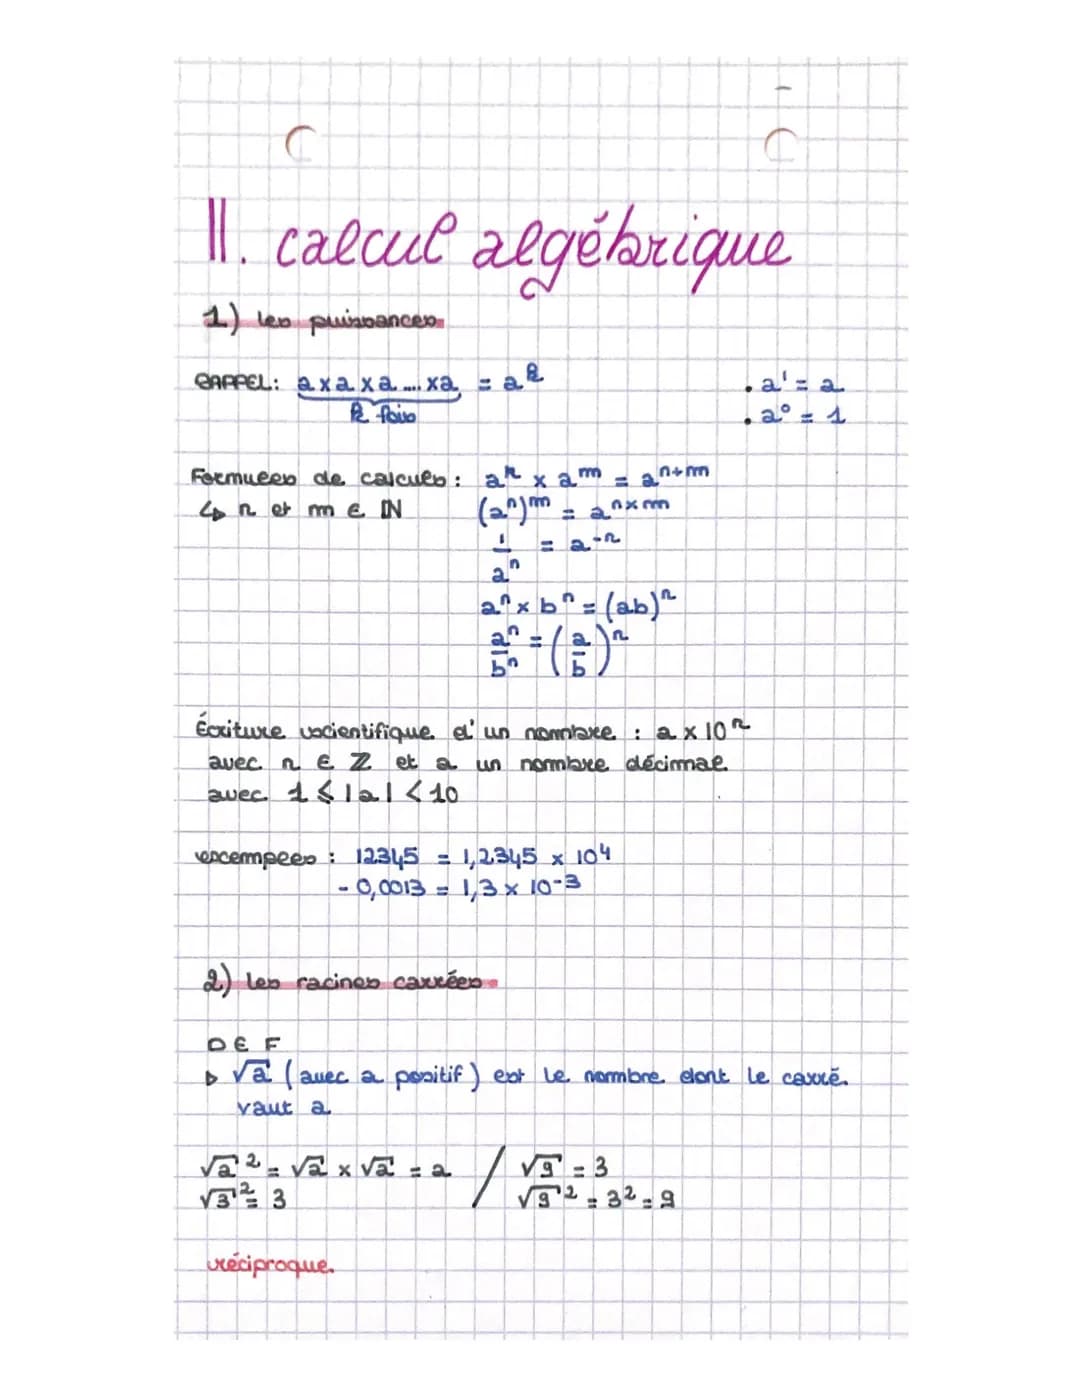 II. calcul algébrique
1) les puissances
RAPPEL: a x a x a .... x a = a^k
k fois
. a^1 = a
. a^0 = 1
Formules de calculs : a^n x a^m = a^(n+m)
↳ n et m ∈ ℕ (a^n)^m = a^(n x m)
1/a^n = a^-n
a^n x b^n = (ab)^n
a^n/b^n = (a/b)^n
Écriture scientifique d'un nombre : a x 10^n
avec n ∈ ℤ et a un nombre décimal
avec 1 ≤ |a| < 10
exemples : 12345 = 1,2345 x 10^4
- 0,0013 = 1,3 x 10^-3
2) les racines carrées
DEF
▹ √a (avec a positif) est le nombre dont le carré
vaut a
√a² = √a x √a = a / √9 = 3
√3² = 3 √9² = 3² = 9
réciproque.